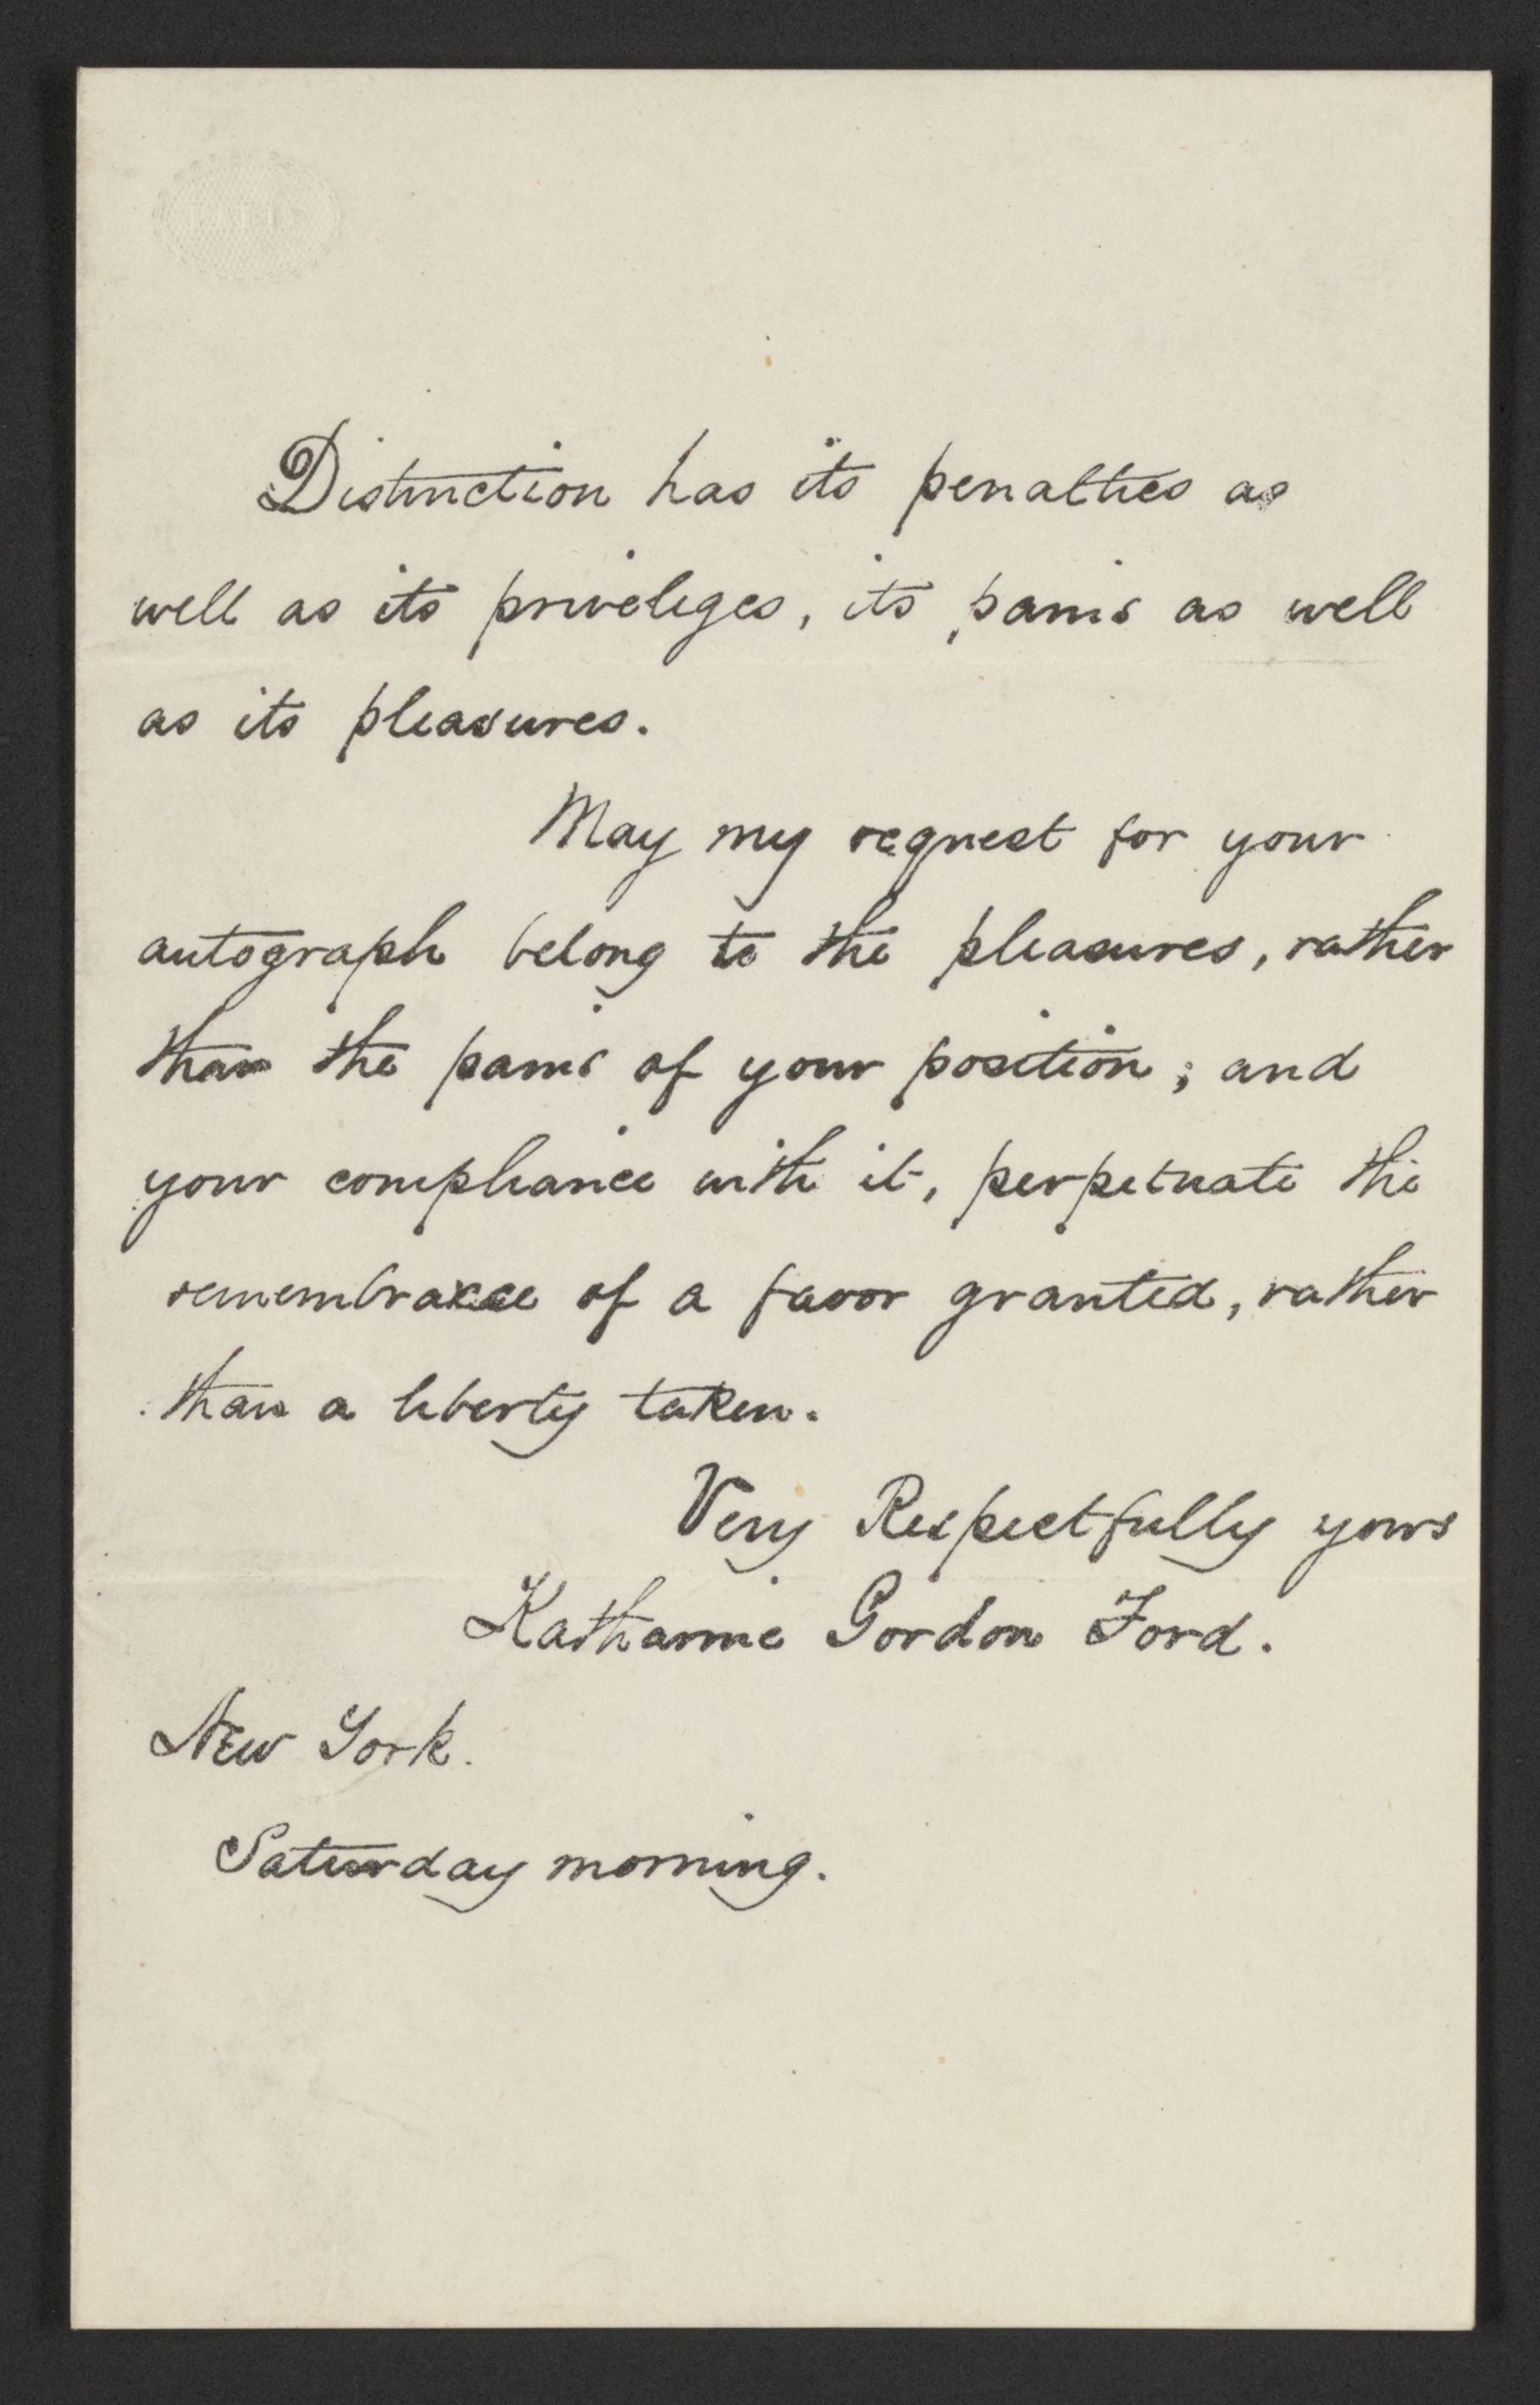 Distinction has its penalties as
well as its priveleges, its pains as well
as its pleasures.
May my request for your
autograph belong to the pleasures, rather
than the pains of your position; and
your compliance with it, perpetuate the
remembrance of a favor granted, rather
than a liberty taken.
Very Respectfully yours
Katharine Gordon Ford.
New York.
Saturday morning.